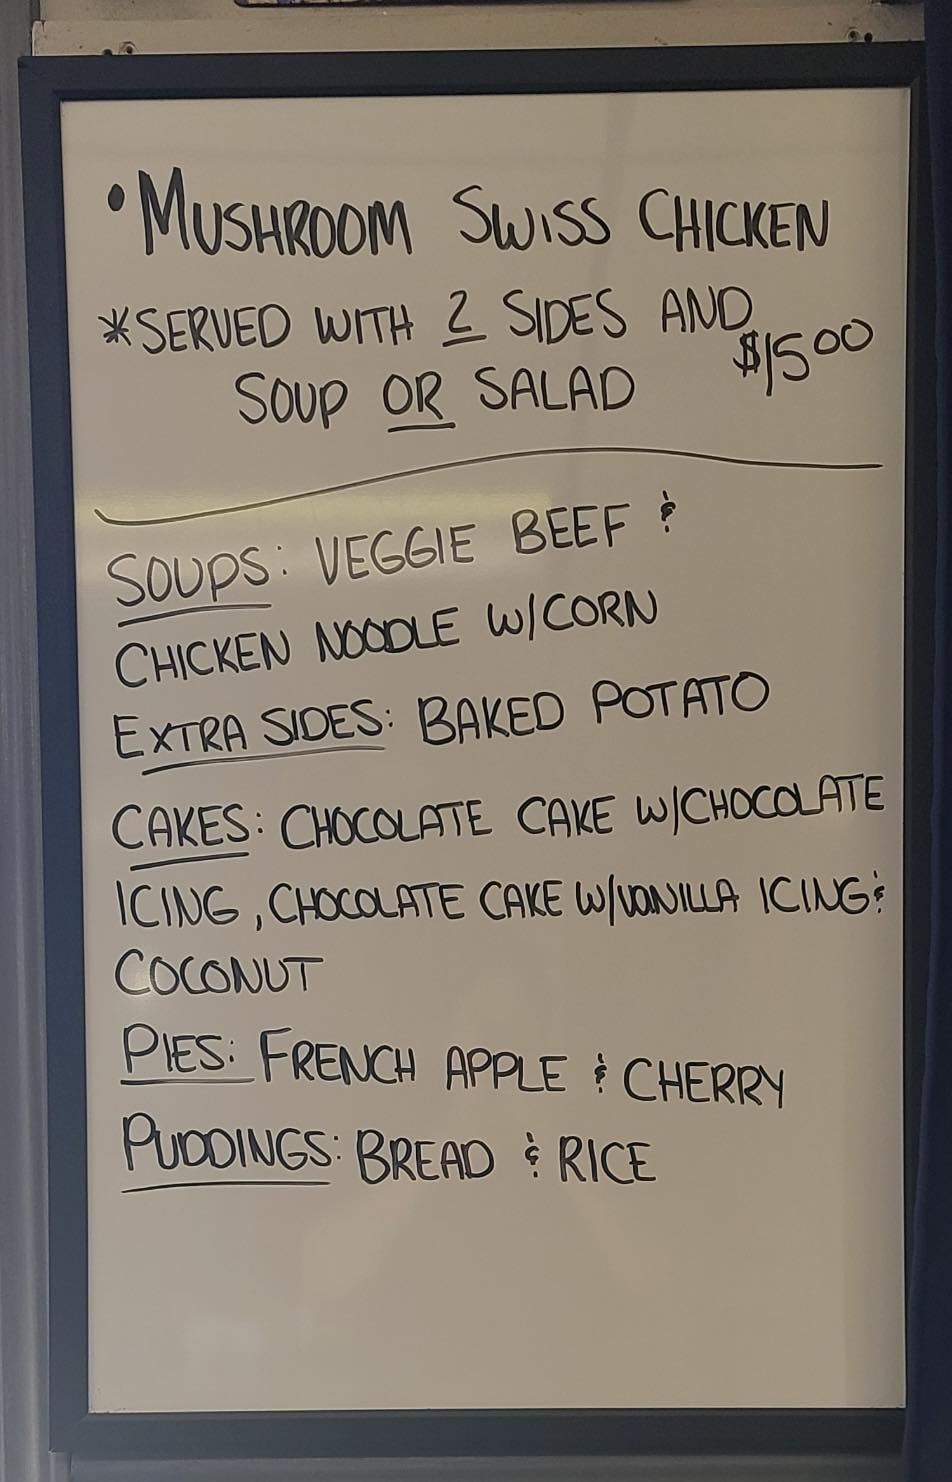 • MUSHROOM SWISS CHICKEN
*SERVED WITH 2 SIDES AND
$15.00
SOUP OR SALAD
SOUPS: VEGGIE BEEF &
CHICKEN NOODLE W/CORN
EXTRA SIDES: BAKED POTATO
CAKES: CHOCOLATE CAKE W/CHOCOLATE
ICING, CHOCOLATE CAKE W/VANILLA ICING &
COCONUT
PIES: FRENCH APPLE & CHERRY
PUDDINGS: BREAD & RICE